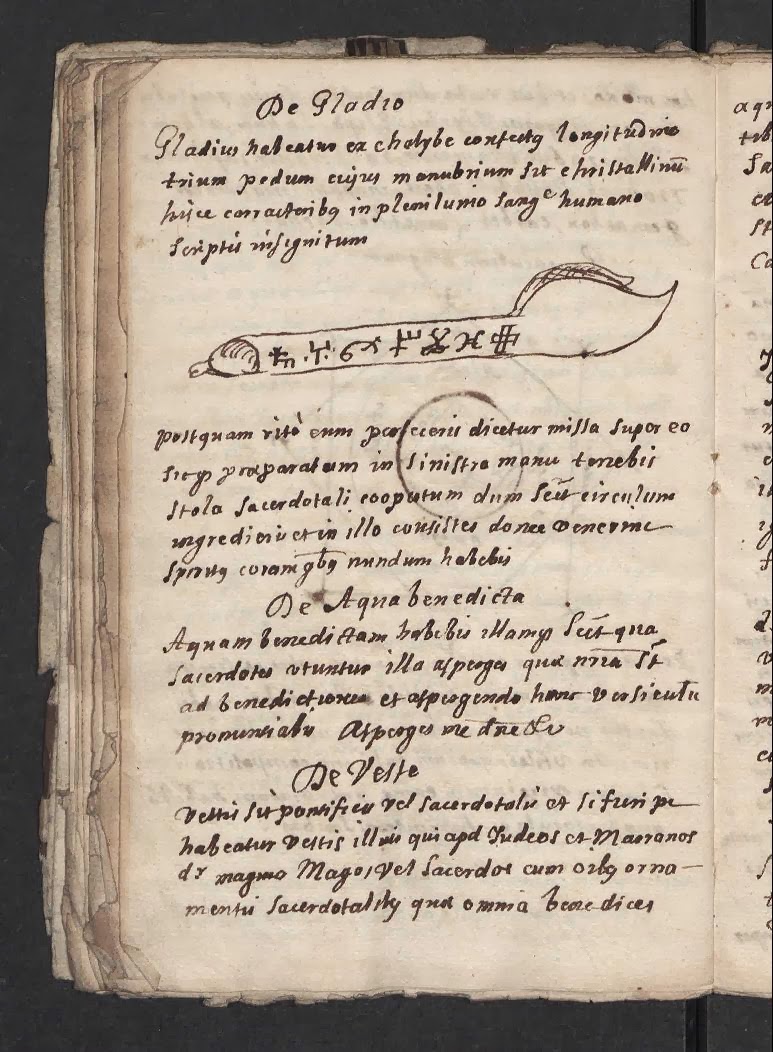 De Gladio
Gladius habeatur ex chalybe confectq longitudine
trium pedum cujus manubrium sit christallinũ
hisce carracteribq in plenilunio sangᵉ humano
scriptis insignitum
postquam ritè eum perfeceris dicetur missa super eo
sicq præparatum in sinistra manu tenebis
stola sacerdotali coopertum dum circulum
ingrederis et in illo consistes donec venerint
spiritq coram qbq nundum habebis
De Aqua benedicta
Aquam benedictam habebis illamq qua
sacerdotes utuntur illa asperges quæ sũt
ad benedictiones et aspergendo hunc versiculũ
pronuntiabis Asperges me dñe &c
De Veste
Vestis sit pontificis vel sacerdotalis et si fieri pt
habeatur vestis illius qui apd Judeos et Marranos
dʳ magnus Magos vel sacerdos cum oibq orna-
mentis sacerdotalibq quæ omnia benedices
aqu